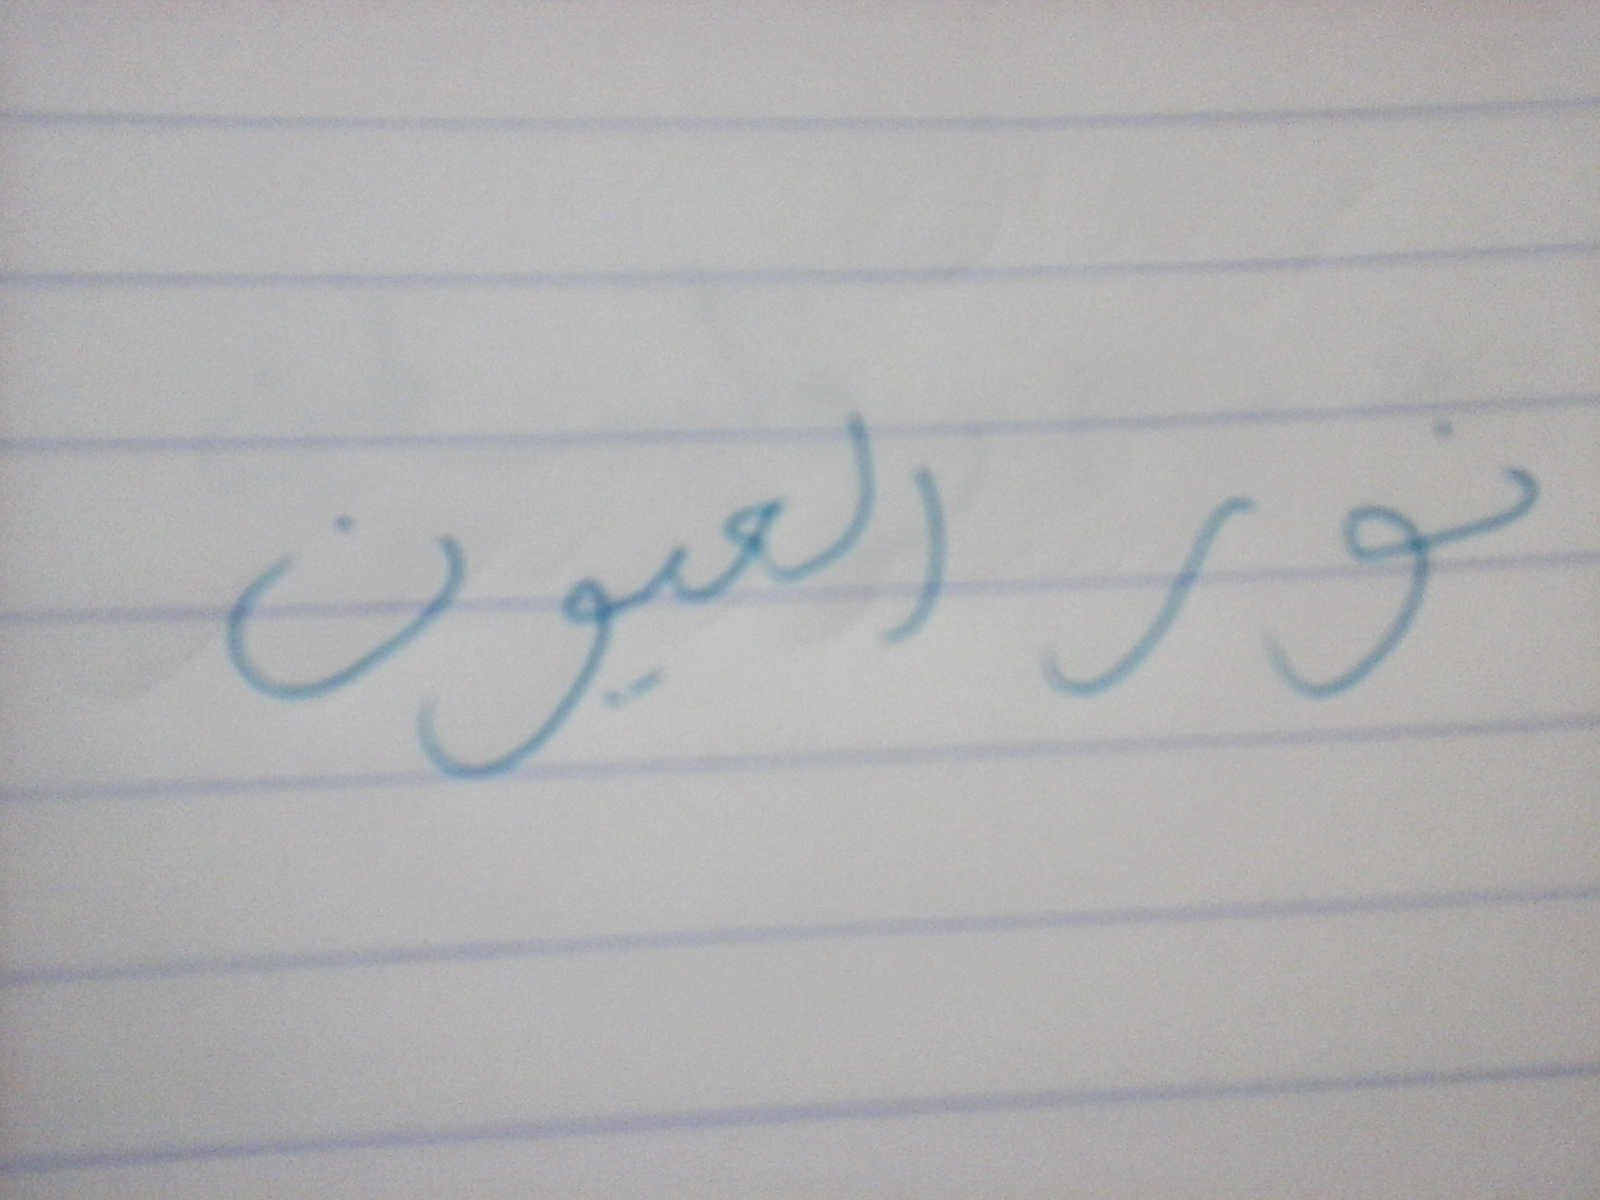 نور العيون